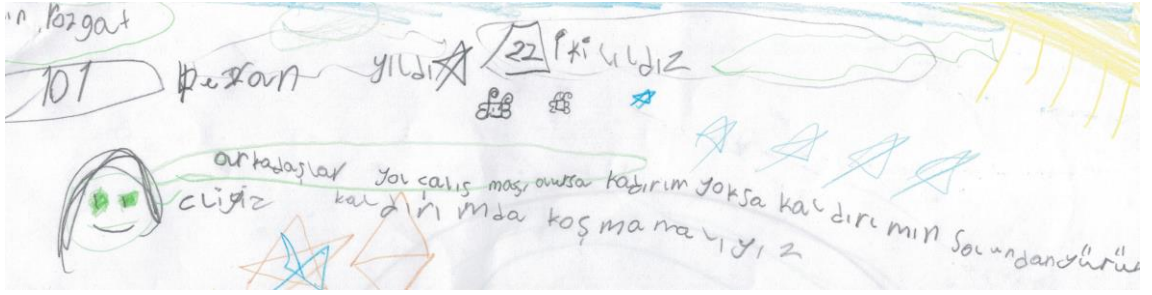 Yozgat
101 yıldı 22 iki yıldız
arkadaşlar yol çalış ması olursa kadırım yoksa kaldırımın solundan yürü
cligiz kaldırımda koşmamalıyız